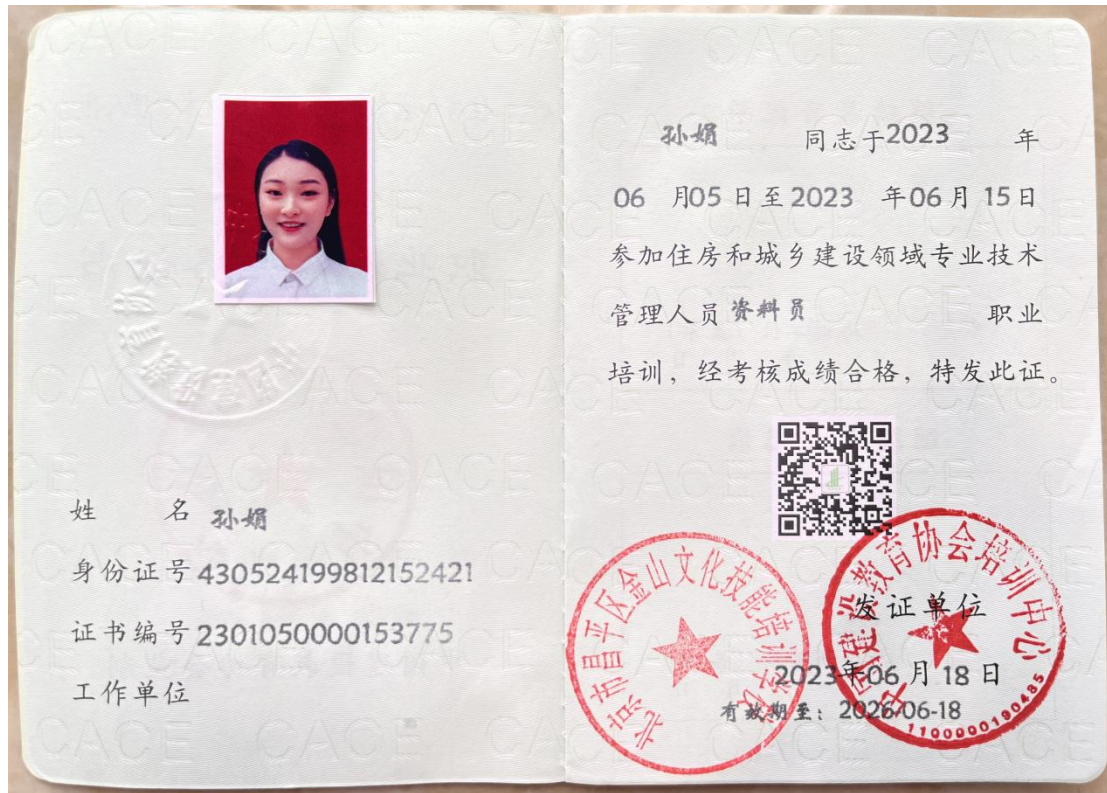 姓 名 孙娟
身份证号 430524199812152421
证书编号 2301050000153775
工作单位
孙娟 同志于2023 年
06 月05 日至 2023 年06 月 15日
参加住房和城乡建设领域专业技术
管理人员 资料员 职业
培训，经考核成绩合格，特发此证。
北京市昌平区金山文化技能培训学校
中国建设教育协会培训中心
1100000190485
发证单位
2023年06 月 18 日
有效期至：2026-06-18
CACE